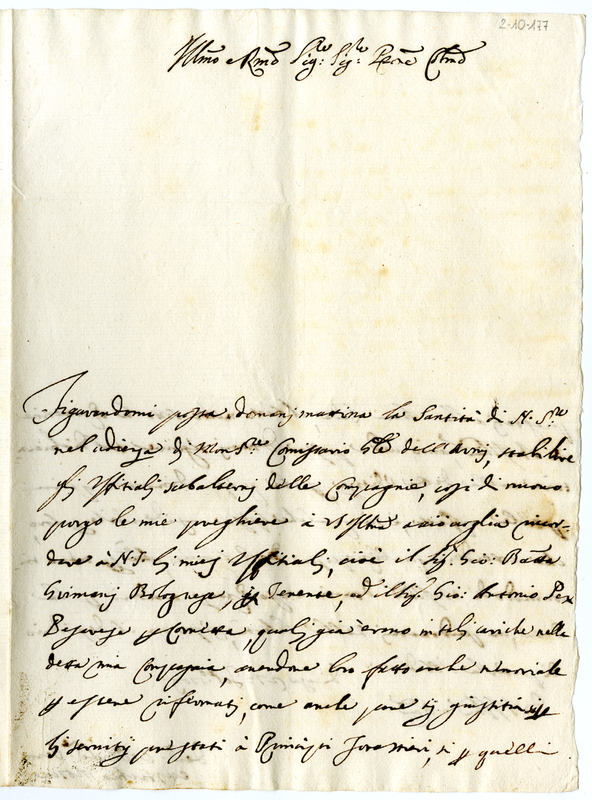 2-10-177
Illmo e Rmo Sig.re Sig.re Prone Colmo
Figurandomi possa domanj mattina la Santità di N. S.re
nel udienza di Mons.re Comissario G.le dell'Armj, stabilire
Vffitialj subalternj delle Compagnie, così di nuouo
porgo le mie preghiere à V S Illma acciò uoglia ricor-
dare à N. S. li miej Vffitialj, cioè il Sig. Gio: Batta
Bolognese, p Tenente, ed il Sig. Gio: Antonio
Pesarese p Cornetta, qualj già erano in talj cariche nella
detta mia Compagnia, auendone loro fatto anche memoriale
p essere riformatj, come anche pare di giustitia p
li seruitij prestati à Principi forastieri, si p quelli